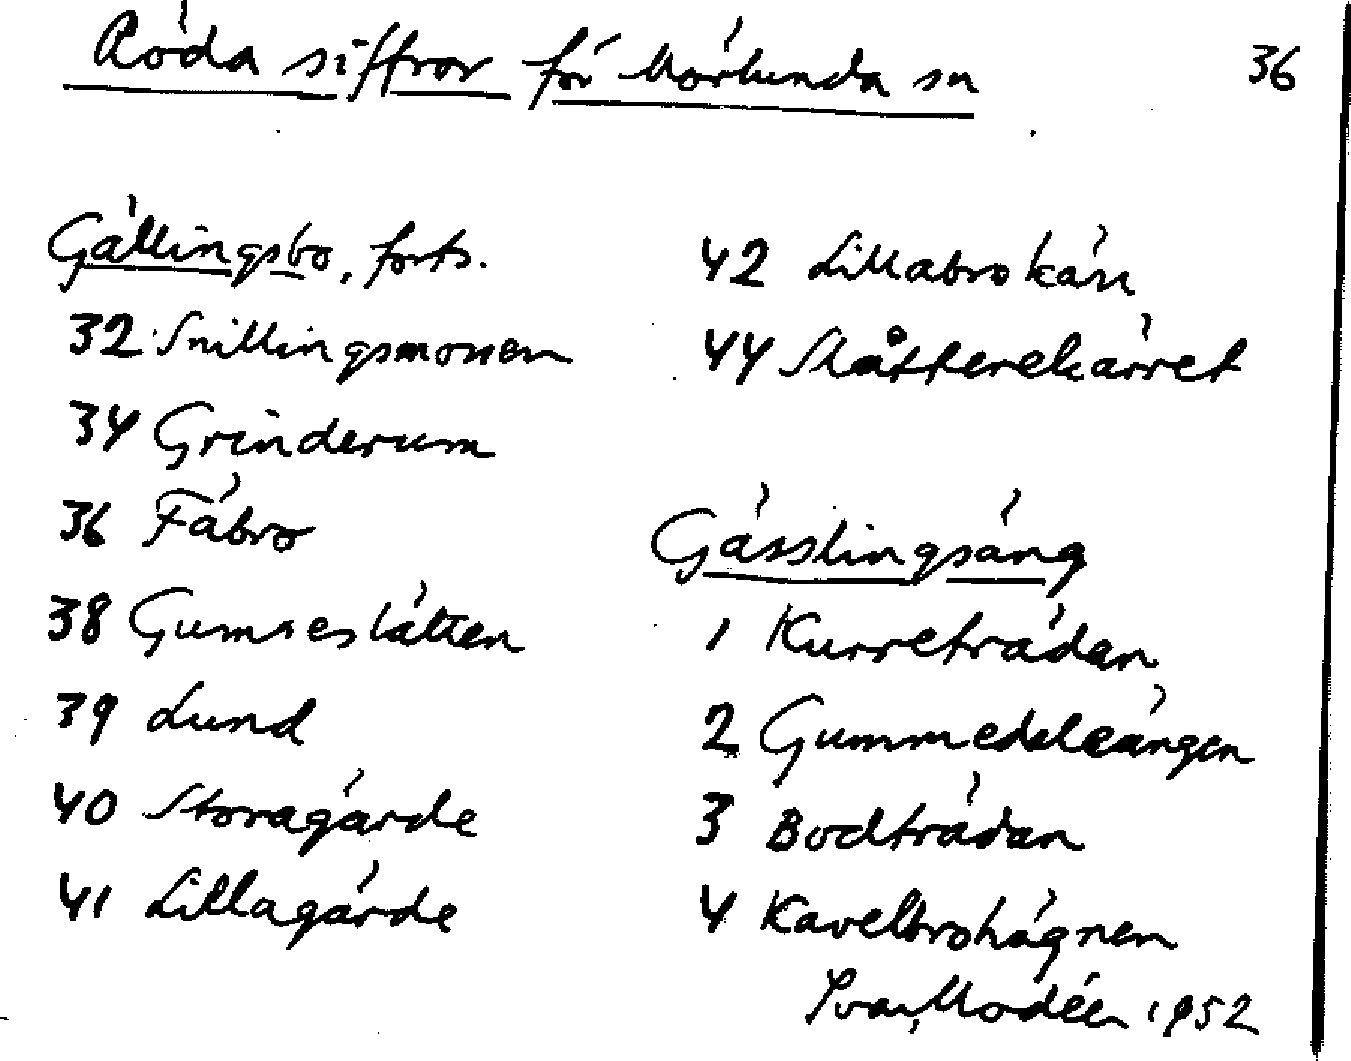 Röda siffror för Mörlunda sn
36
Gällingsbo, forts.
32 Snillingsmossen
34 Grinderum
36 Fäbro
38 Gumseslätten
39 Lund
40 Storagärde
41 Lillagärde
42 Lillabrokärr
44 Slåtterekärret
Gässlingsäng
1 Kurreträdan
2 Gummedeleängen
3 Bodträdan
4 Kavelbrohägnen
Ivar Modéer 1952